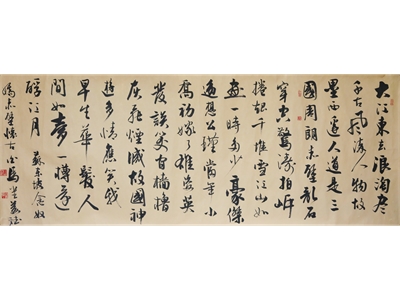 大江東去浪淘盡
千古風流人物故
壘西邊人道是三
國周郎赤壁亂石
穿空驚濤拍岸
捲起千堆雪江山如
畫一時多少豪傑
遙想公瑾當年小
喬初嫁了雄姿英
發談笑間檣櫓
灰飛煙滅故國神
遊多情應笑我
早生華髮人
間如夢一樽還
酹江月 蘇東坡念奴
嬌赤壁懷古